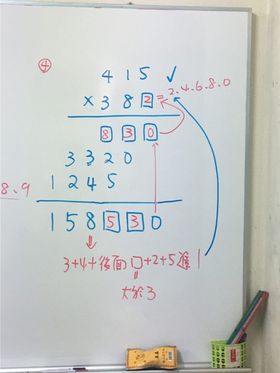 ④
415 ✓
×382 = 2.4.6.8.0
830
3320
8.9
1245
158530
⇓
3+4+後面□+2+5進1
大於3